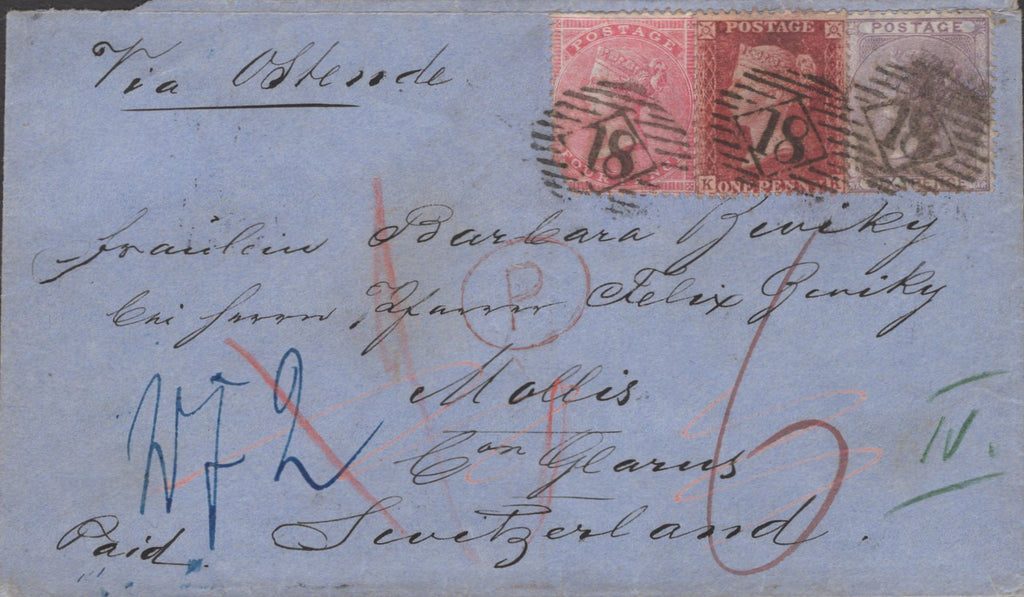 Via Ostende
POSTAGE
POSTAGE
POSTAGE
18
18
18
FOUR
K ONE PENNY
Fräulein Barbara Zwicky
bei Herrn Pfarrer Felix Zwicky
P
Mollis
Con Glarus
Switzerland.
Paid.
2
6
IV.